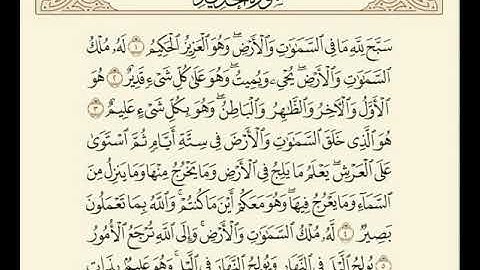 سُورَةُ الحَدِيدِ
سَبَّحَ لِلَّهِ مَا فِي السَّمَٰوَٰتِ وَالْأَرْضِ ۖ وَهُوَ الْعَزِيزُ الْحَكِيمُ ١ لَهُۥ مُلْكُ
السَّمَٰوَٰتِ وَالْأَرْضِ ۖ يُحْيِۦ وَيُمِيتُ ۖ وَهُوَ عَلَىٰ كُلِّ شَيْءٍ قَدِيرٌ ٢ هُوَ
الْأَوَّلُ وَالْآخِرُ وَالظَّٰهِرُ وَالْبَاطِنُ ۖ وَهُوَ بِكُلِّ شَيْءٍ عَلِيمٌ ٣
هُوَ الَّذِي خَلَقَ السَّمَٰوَٰتِ وَالْأَرْضَ فِي سِتَّةِ أَيَّامٍ ثُمَّ اسْتَوَىٰ
عَلَى الْعَرْشِ ۖ يَعْلَمُ مَا يَلِجُ فِي الْأَرْضِ وَمَا يَخْرُجُ مِنْهَا وَمَا يَنزِلُ مِنَ
السَّمَاءِ وَمَا يَعْرُجُ فِيهَا ۖ وَهُوَ مَعَكُمْ أَيْنَ مَا كُنتُمْ ۚ وَاللَّهُ بِمَا تَعْمَلُونَ
بَصِيرٌ ٤ لَّهُۥ مُلْكُ السَّمَٰوَٰتِ وَالْأَرْضِ ۚ وَإِلَى اللَّهِ تُرْجَعُ الْأُمُورُ
٥ يُولِجُ الَّيْلَ فِي النَّهَارِ وَيُولِجُ النَّهَارَ فِي الَّيْلِ ۚ وَهُوَ عَلِيمٌ بِذَاتِ